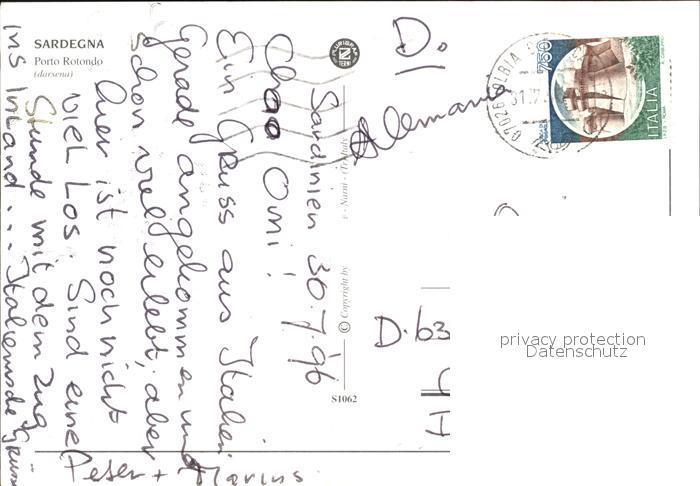 SARDEGNA
Porto Rotondo
(darsena)
Sardinien 30.7.96
Ciao Omi!
Ein Gruss aus Italien
Gerade angekommen und
schon viel erlebt, aber
hier ist noch nicht
viel los. Sind eine
Stunde mit dem Zug
ins Inland... Italienische Grüsse
Peter + Marius.
S1062
© Copyright by
- Narni - (Terni)
PLURIGRAF
TERNI
D.
Alemania
D.63
4
H
07026 OLBIA
31.7.
750
ITALIA
privacy protection
Datenschutz